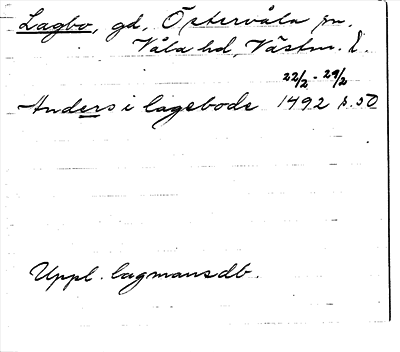 Lagbo, gd, Östervåla sn.
Våla hd, Västm. l.
22/2 - 29/2
Anders i lagebode 1492 s. 50
Uppl. lagmansdb.